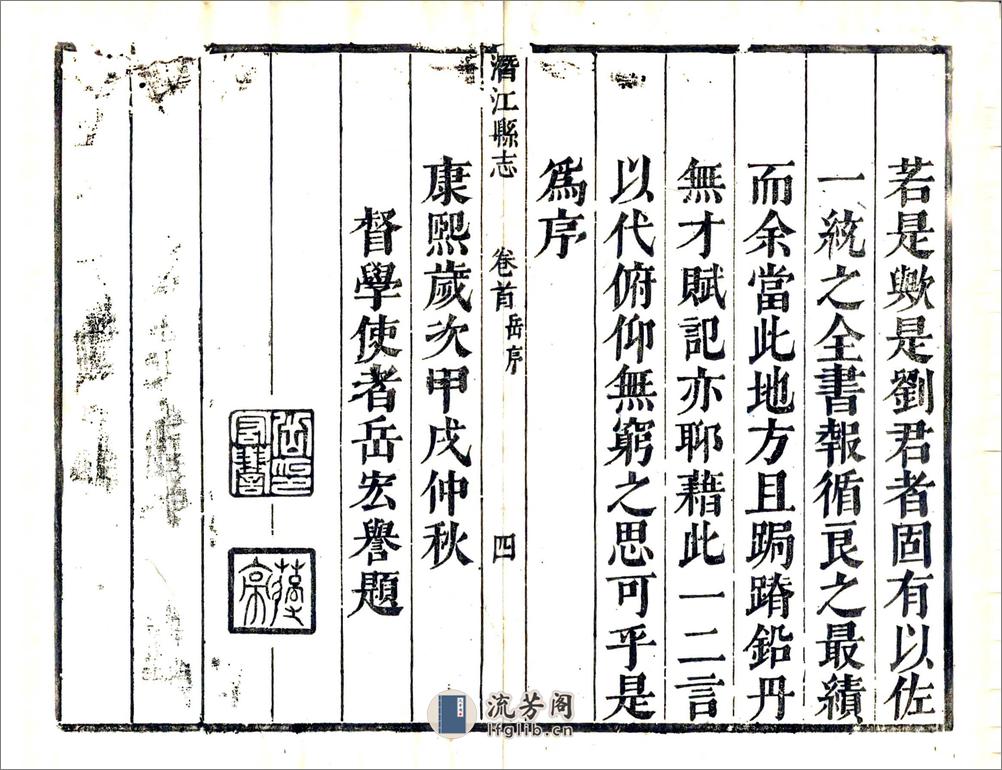 若是歟是劉君者固有以佐
一統之全書報循良之最績
而余當此地方且跼蹐鉛丹
無才賦記亦聊藉此一二言
以代俯仰無窮之思可乎是
爲序
潛江縣志 卷首 岳序 四
康熙歲次甲戌仲秋
督學使者岳宏譽題
岳印宏譽
流芳阁
lfglib.cn